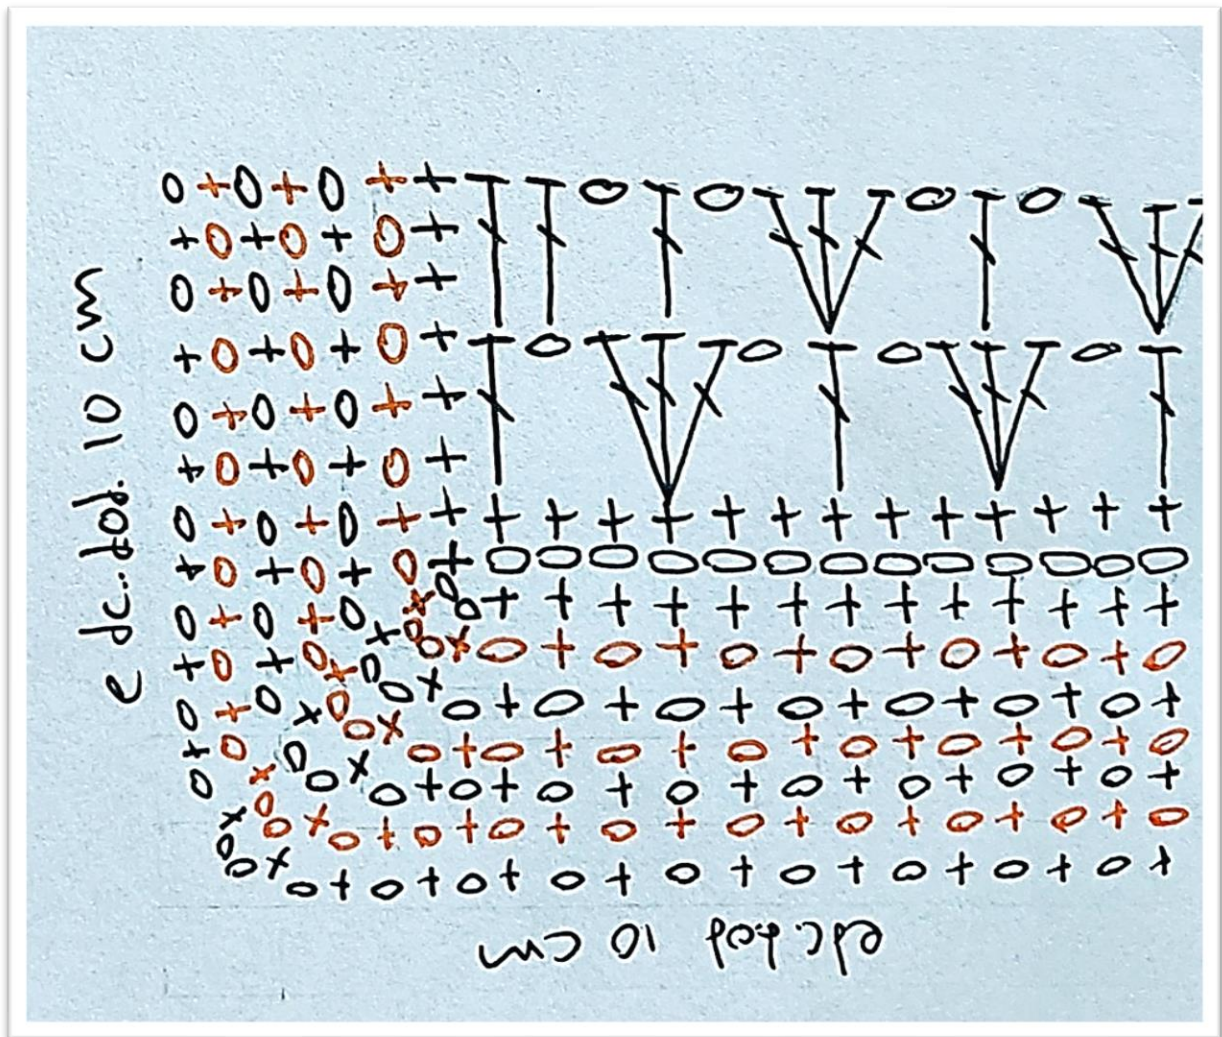 e dc..tod. 10 cm
edc.tod 10 cm